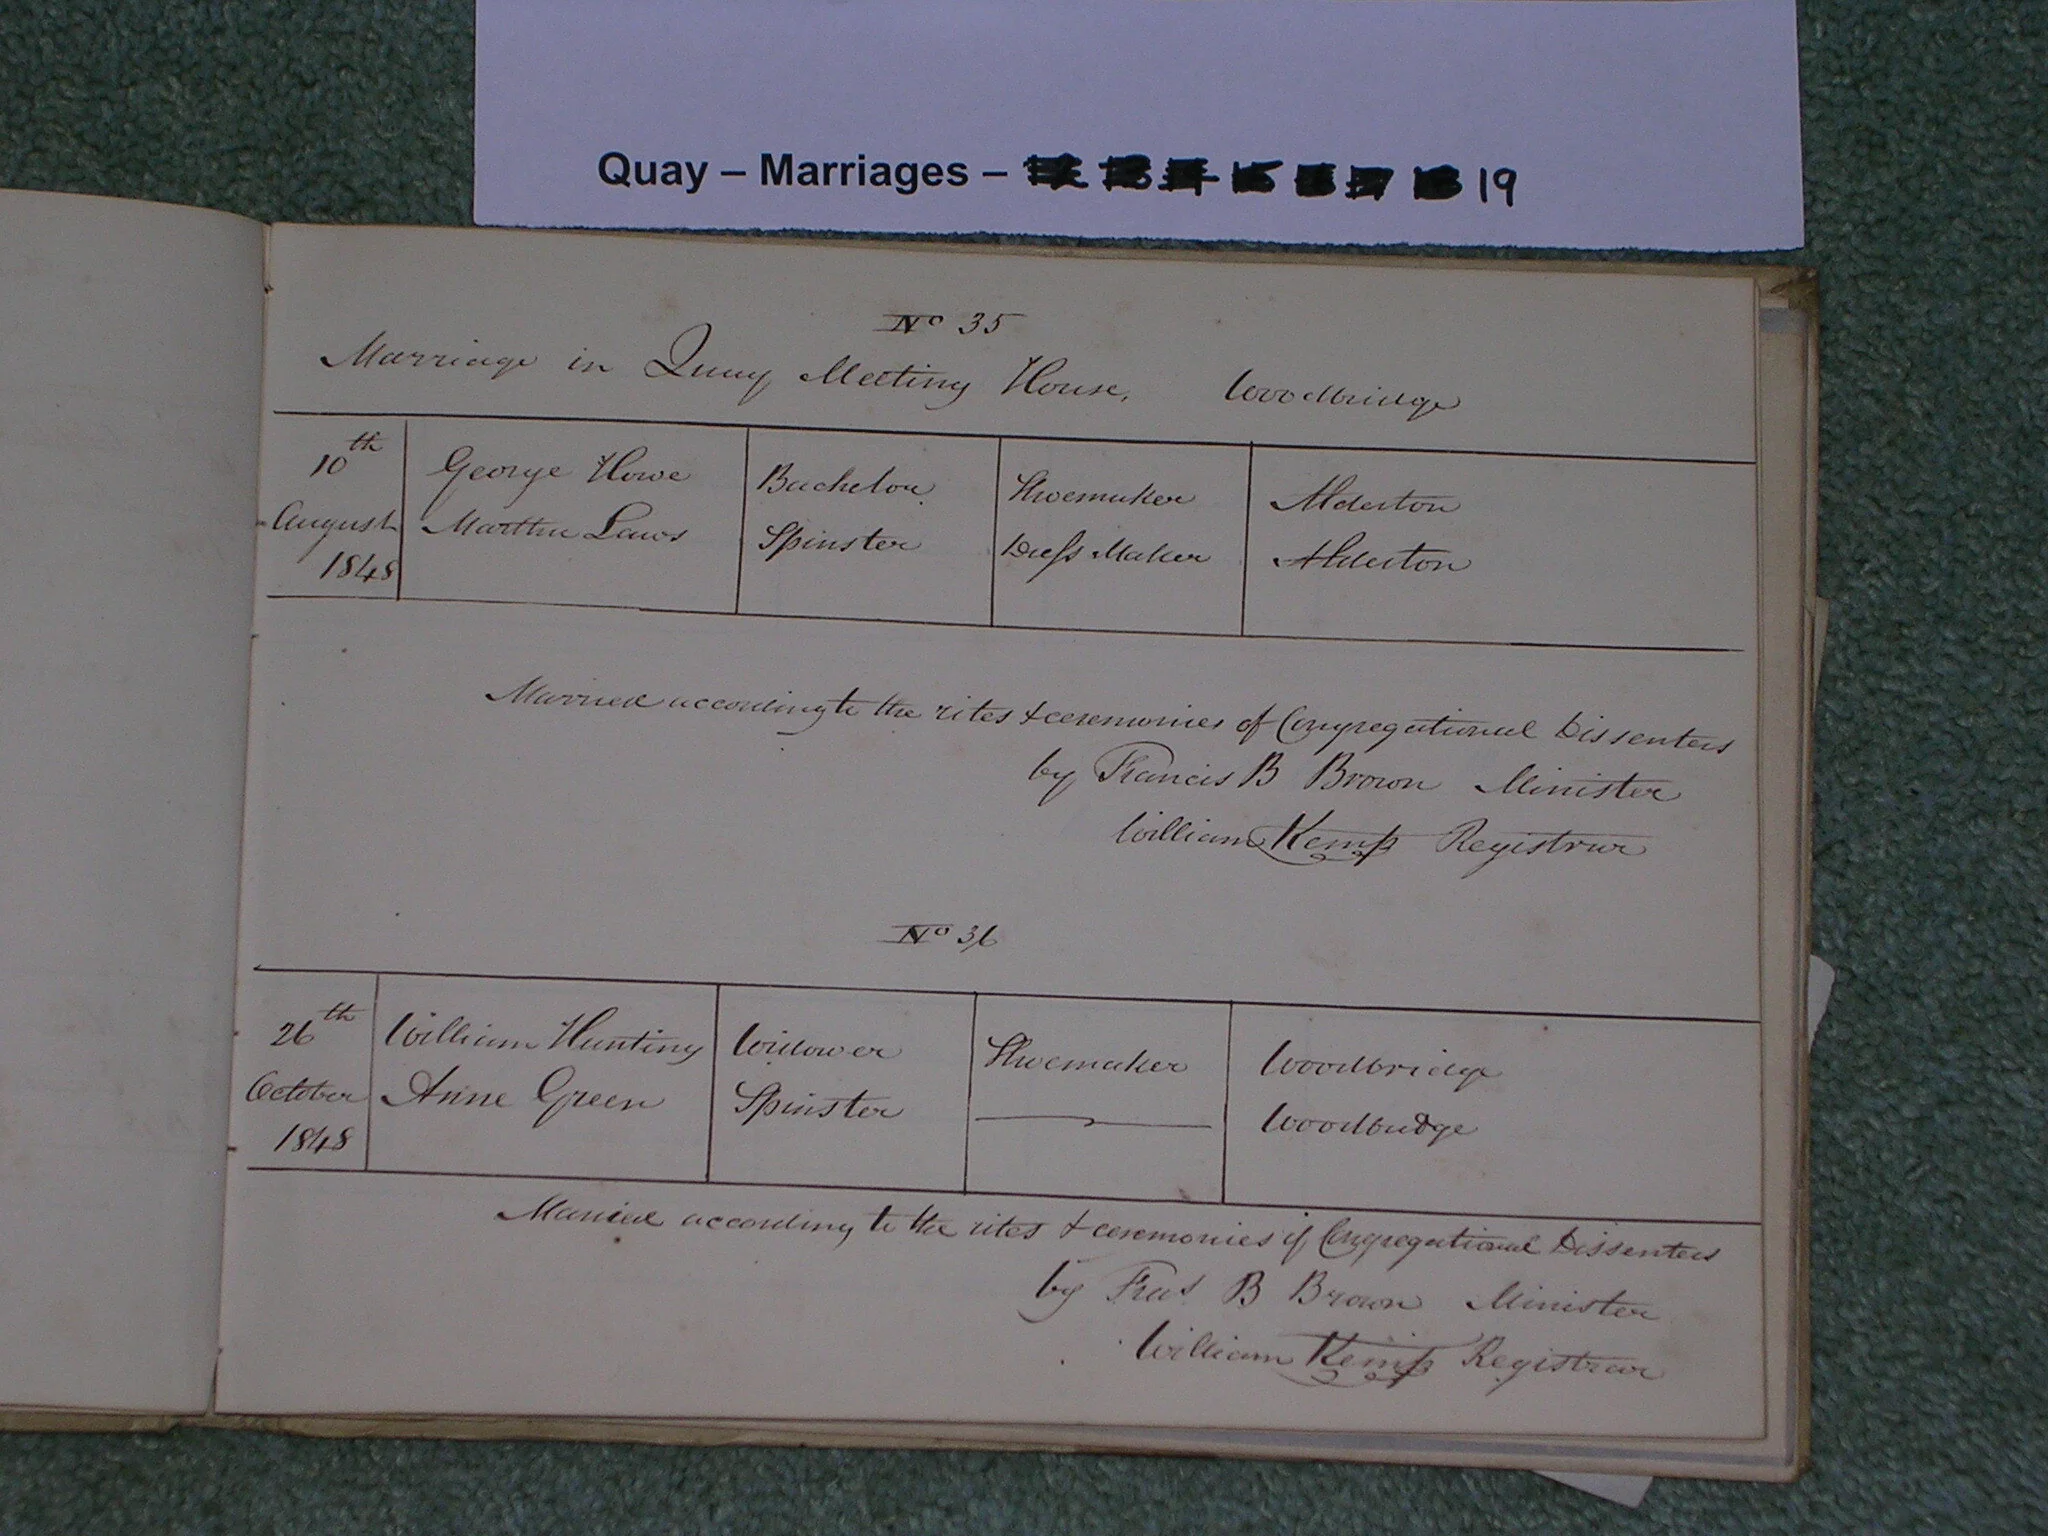 Quay – Marriages – 19
No 35
Marriage in Quay Meeting House, Woodbridge
10th August 1848
George Howe Bachelor Shoemaker Alderton
Martha Laws Spinster Dress Maker Alderton
Married according to the rites & ceremonies of Congregational Dissenters
by Francis B Brown Minister
William Kemp Registrar
No 36
26th October 1848
William Hunting Widower Shoemaker Woodbridge
Anne Green Spinster Woodbridge
Married according to the rites & ceremonies of Congregational Dissenters
by Fras B Brown Minister
William Kemp Registrar